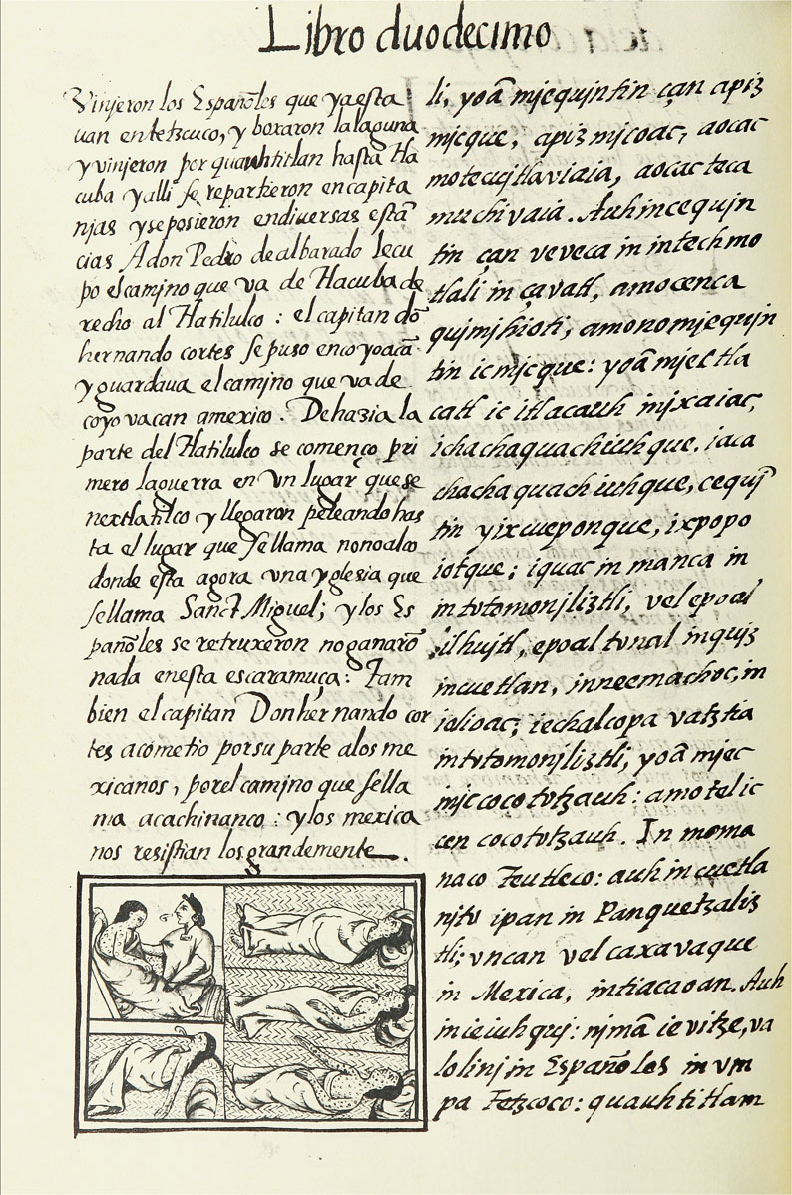 Libro duodecimo
Vinjeron los Españoles que ya esta
uan en tetzcuco, y boxaron la laguna
y vinjeron por quauhtitlan hasta tla
cuba y alli se repartieron en capita
njas y se posieron en diversas estā
cias A don Pedro de albarado le cu
po el camjno que va de tlacuba de
recho al tlatilulco : el capitan dō
hernando cortes se puso en coyoacā
y guardaua el camjno que va de
coyovacan a mexico . De hazia la
parte del tlatilulco se començo pri
mero la guerra en vn lugar que se
nextlatilco y llegaron peleando has
ta el lugar que se llama nonoalco
donde esta agora vna yglesia que
se llama Sanct Miguel; y los Es
pañoles se retruxeron no ganarō
nada en esta escaramuça : Tam
bien el capitan Don hernando cor
tes acometio por su parte a los me
xicanos , por el camjno que se lla
ma acachinanco : y los mexica
nos resistian los grandemente .
li, yoā mjequjntin çan apiz
mjcque, apizmjcoac, aocac
motecujtlaviaia, aocac teca
muchivaia . Auh in cequjn
tin çan veveca in intech mo
tlali in çavatl, amo cenca
qujmjhioti, amono mjequjn
tin ic mjcque : yoā mjec tla
catl ic itlacauh in jxaiac,
ichachaquachiuhque, iaca
chachaquachiuhque, cequj
tin yixcueponque, ixpopo
iotque ; iquac in manca in
in totomonjliztli, vel epoal
ilhujtl, epoal tonal in qujz
in cuetlan, in neemachoc, in
iolioac ; ie chalcopa vatztia
in totomonjliztli, yoā mjec
inic cocototzauh : amo tel ic
cen cocototzauh . In moma
naco Teutleco : auh in cuetla
njto ipan in Panquetzaliz
tli ; vncan vel caxavaque
in Mexica, in tiacaoan . Auh
in ie iuhquj : njmā ie vitze, va
lolinj in Españoles in vm
pa Tetzcoco : quauhtitlam